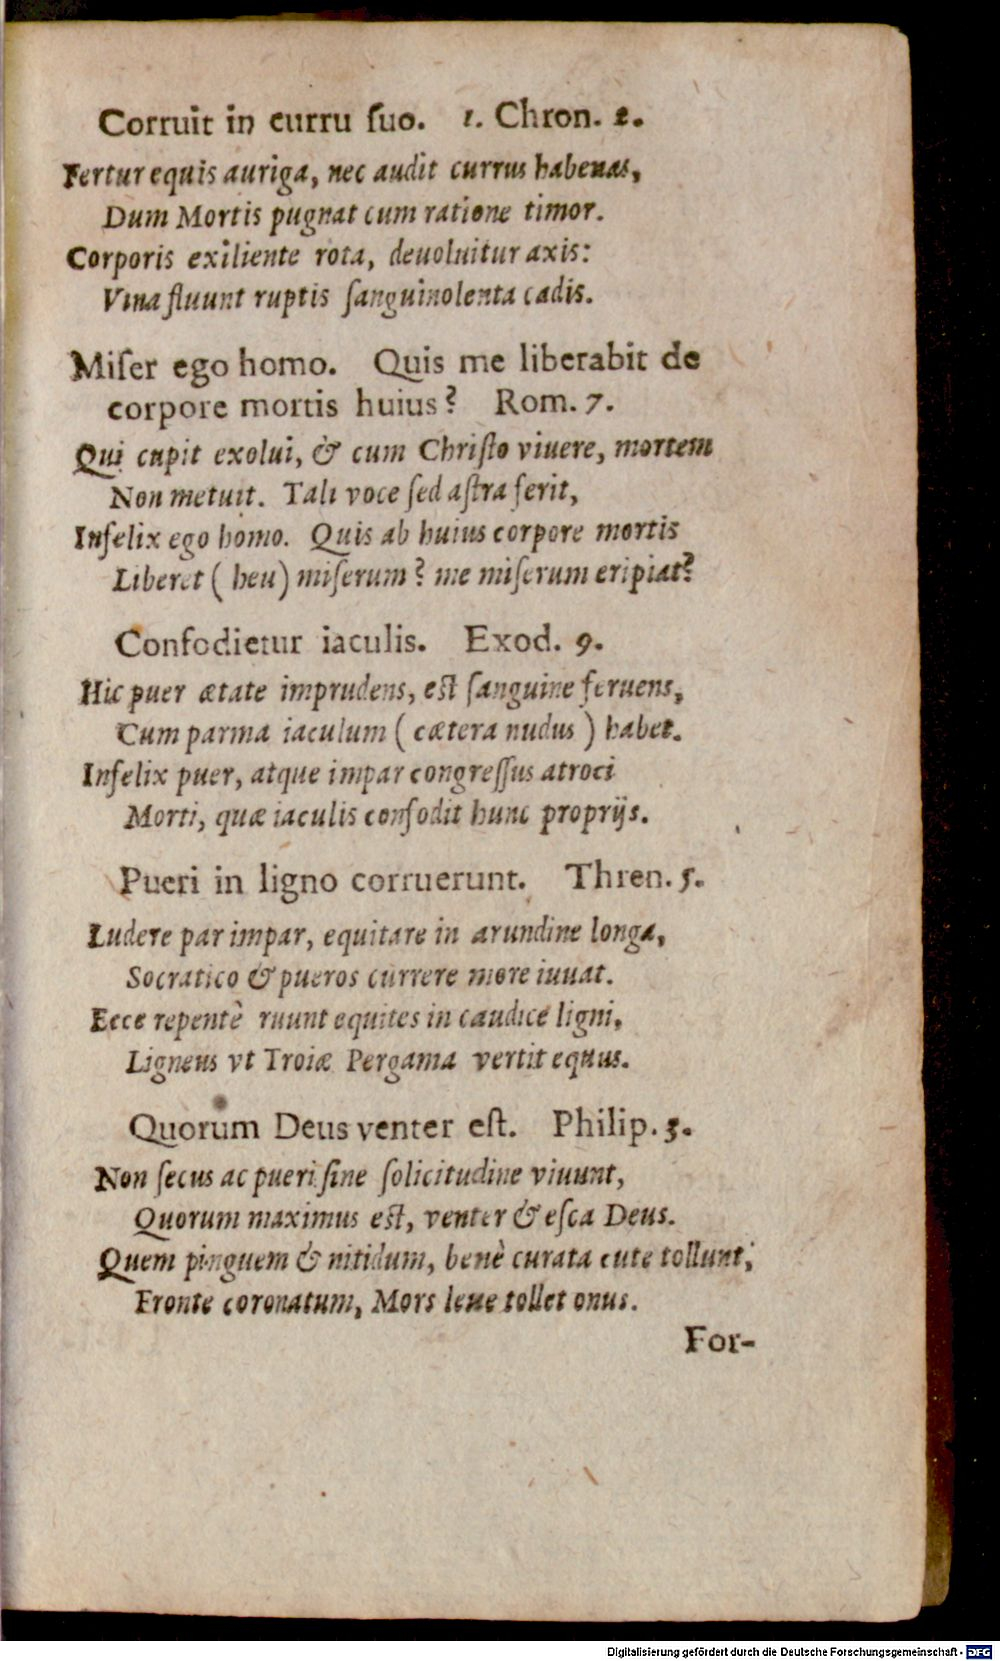 Corruit in curru ſuo. 1. Chron. 2.
Fertur equis auriga, nec audit currus habenas,
Dum Mortis pugnat cum ratione timor.
Corporis exiliente rota, deuoluitur axis:
Vina fluunt ruptis ſanguinolenta cadis.
Miſer ego homo. Quis me liberabit de
corpore mortis huius? Rom. 7.
Qui cupit exolui, & cum Chriſto viuere, mortem
Non metuit. Tali voce ſed aſtra ferit,
Infelix ego homo. Quis ab huius corpore mortis
Liberet ( heu ) miſerum? me miſerum eripiat?
Confodietur iaculis. Exod. 9.
Hic puer ætate imprudens, eſt ſanguine feruens,
Cum parma iaculum ( cætera nudus ) habet.
Infelix puer, atque impar congreſſus atroci
Morti, quæ iaculis confodit hunc proprijs.
Pueri in ligno corruerunt. Thren. 5.
Ludere par impar, equitare in arundine longa,
Socratico & pueros currere more iuuat.
Ecce repentè ruunt equites in caudice ligni,
Ligneus vt Troiæ Pergama vertit equus.
Quorum Deus venter eſt. Philip. 3.
Non ſecus ac pueri ſine ſolicitudine viuunt,
Quorum maximus eſt, venter & eſca Deus.
Quem pinguem & nitidum, benè curata cute tollunt,
Fronte coronatum, Mors leue tollet onus.
For-
Digitalisierung gefördert durch die Deutsche Forschungsgemeinschaft - DFG